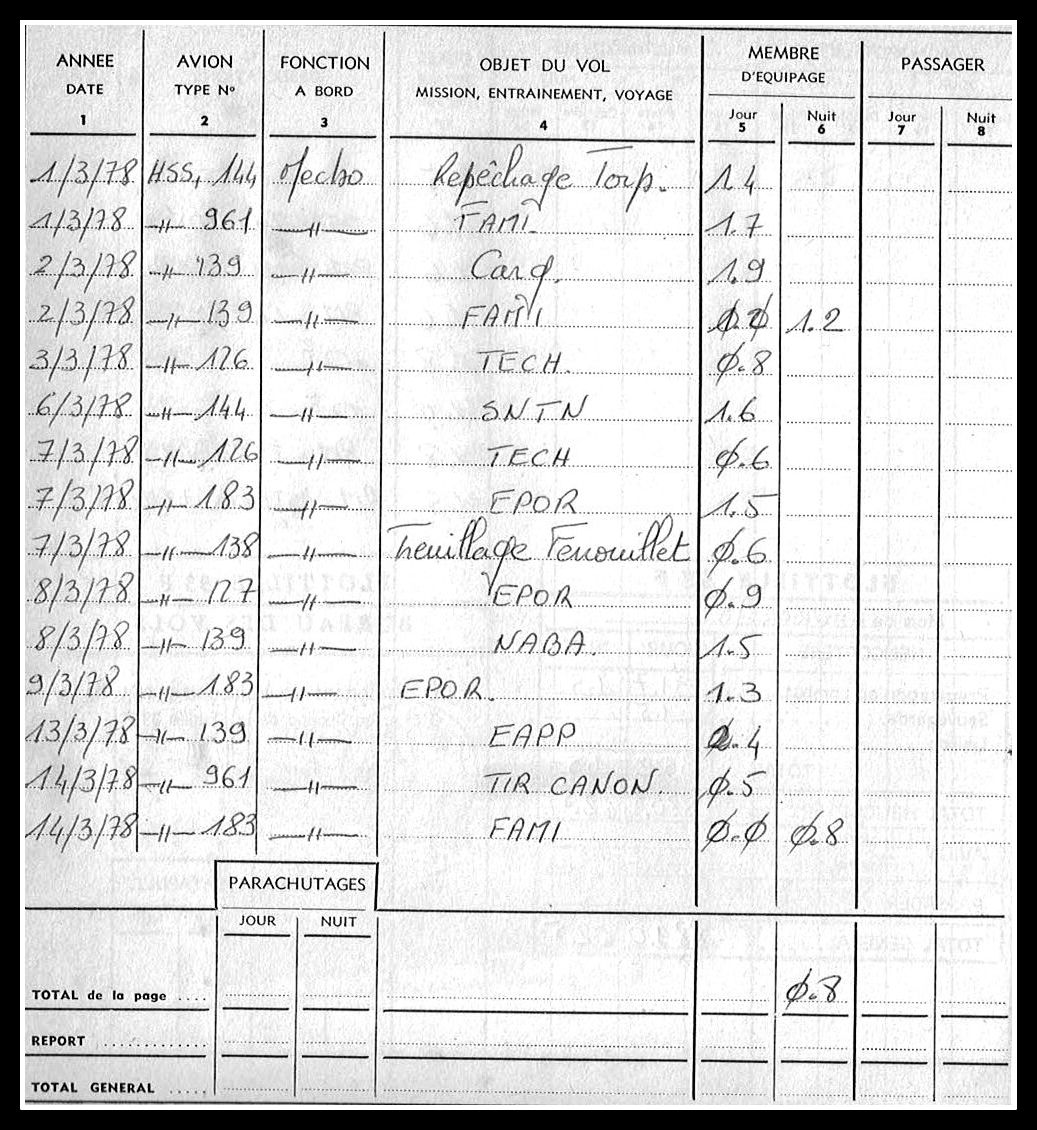 ANNEE AVION FONCTION OBJET DU VOL MEMBRE PASSAGER
DATE TYPE Nº A BORD MISSION, ENTRAINEMENT, VOYAGE D'EQUIPAGE
Jour Nuit Jour Nuit
1 2 3 4 5 6 7 8
1/3/78 HSS, 144 Mecbo Repêchage Torp. 1.4
1/3/78 -"- 961 -"- FAMI. 1.7
2/3/78 -"- 139 -"- Carq. 1.9
2/3/78 -"- 139 -"- FAMI 1.2
3/3/78 -"- 126 -"- TECH. Ø.8
6/3/78 -"- 144 -"- SNTN 1.6
7/3/78 -"- 126 -"- TECH Ø.6
7/3/78 -"- 183 -"- EPOR 1.5
7/3/78 -"- 138 -"- Treuillage Fenouillet Ø.6
8/3/78 -"- 127 -"- EPOR Ø.9
8/3/78 -"- 139 -"- NABA. 1.5
9/3/78 -"- 183 -"- EPOR. 1.3
13/3/78 -"- 139 -"- EAPP .4
14/3/78 -"- 961 -"- TIR CANON. Ø.5
14/3/78 -"- 183 -"- FAMI Ø.Ø Ø.8
PARACHUTAGES
JOUR NUIT
TOTAL de la page .... Ø.8
REPORT ...........
TOTAL GENERAL .....